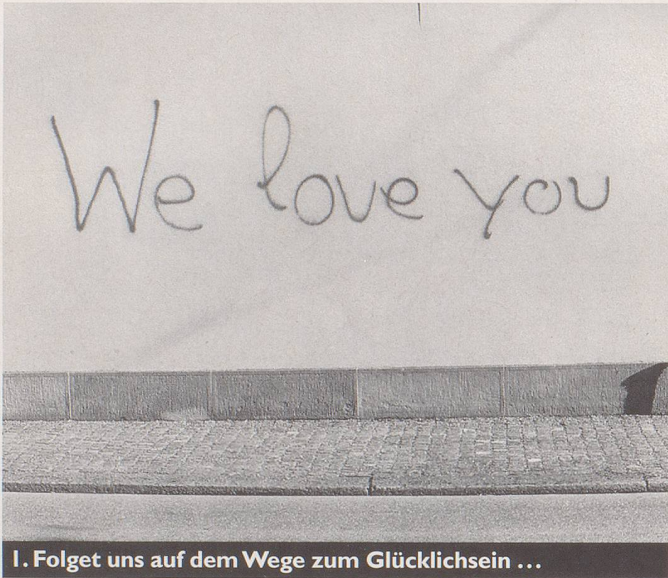 We love you
1. Folget uns auf dem Wege zum Glücklichsein ...